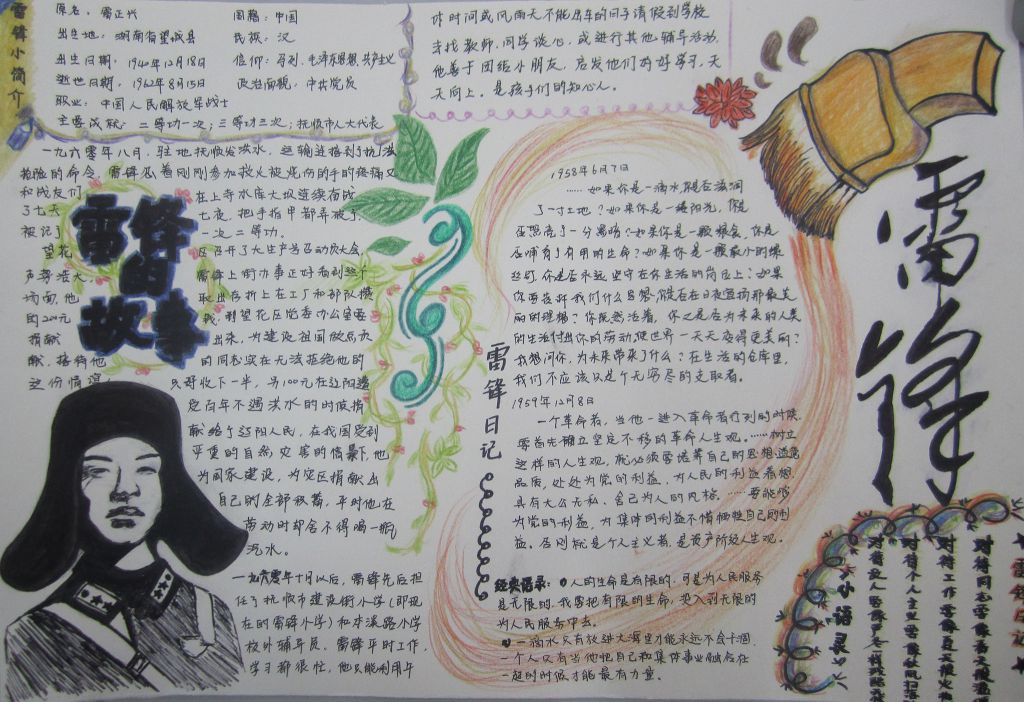 雷锋小简介
原名：雷正兴
国籍：中国
出生地：湖南省望城县
民族：汉
出生日期：1940年12月18日
信仰：马列、毛泽东思想 共产主义
逝世日期：1962年8月15日
政治面貌：中共党员
职业：中国人民解放军战士
主要成就：二等功一次；三等功三次；抚顺市人大代表
雷锋的故事
一九六零年八月，驻地抚顺发洪水，运输连接到了抗洪
抢险的命令。雷锋忍着刚刚参加救火被烧伤的手的疼痛又
和战友们
在上寺水库大坝连续奋战
了七天
七夜，把手指甲都弄破了
被记了
一次二等功。
望花
区召开了大生产号召动员大会
声势浩大
雷锋上街办事正好看到这个
场面，他
取出存折上在工厂和部队攒
的200元
钱，到望花区党委办公室要
捐献
出来，为建设祖国做点贡
献，接待他
的同志实在无法拒绝他的
这份情谊，
只要收下一半。另100元在辽阳遭
受百年不遇洪水的时候捐
献给了辽阳人民，在我国受到
严重的自然灾害的情景下，他
为国家建设，为灾区捐献出
自己的全部积蓄，平时他在
劳动时却舍不得喝一瓶
汽水。
一九六零年十月以后，雷锋先后担
任了抚顺市建设街小学（即现
在的雷锋小学）和本溪路小学
校外辅导员。雷锋平时工作，
学习都很忙，他只能利用午
休时间或风雨天不能出车的日子请假到学校
来找教师，同学谈心，或进行其他辅导活动。
他善于团结小朋友，启发他们好好学习，天
天向上。是孩子们的知心人。
雷锋日记
1958年6月7日
……如果你是一滴水，你是否滋润
了一寸土地？如果你是一缕阳光，你是
否照亮了一分黑暗？如果你是一颗粮食，你是
否哺育了有用的生命？如果你是一颗最小的螺
丝钉，你是否永远坚守在你生活的岗位上？如果
你要告诉我们什么思想，你是否在日夜宣扬那最美
丽的理想？你既然活着，你又是否为未来的人类
的生活付出你的劳动，使世界一天天变得更美丽？
我想问你，为未来带来了什么？在生活的仓库里，
我们不应该只是个无穷尽的支取者。
1959年12月8日
一个革命者，当他一进入革命者行列的时候，
要首先确立坚定不移的革命人生观。……树立
这样的人生观，就必须要培养自己的思想道德
品质，处处为党的利益，为人民的利益着想，
具有大公无私、舍己为人的风格。……要能够
为党的利益，为集体的利益不惜牺牲自己的利
益。否则就是个人主义者，是资产阶级人生观。
经典语录：人的生命是有限的，可是为人民服务
是无限的，我要把有限的生命，投入到无限的
为人民服务中去。
一滴水只有放进大海里才能永远不会干涸，
一个人只有当他把自己和集体事业融合在
一起的时候才能最有力量。
雷锋
小语录
对待同志要像春天般温
对待工作要像夏天般火
对待个人主义要像秋风扫落
对待敌人要像严冬一样残酷无